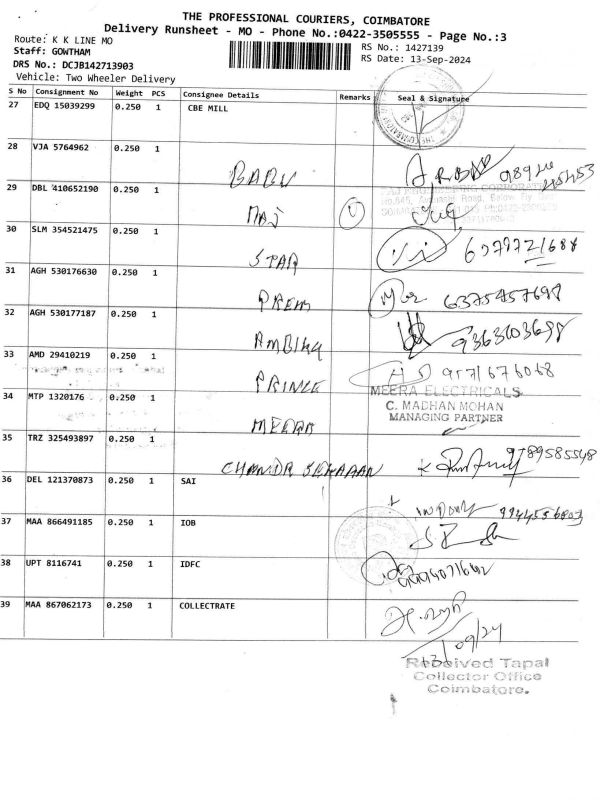 THE PROFESSIONAL COURIERS, COIMBATORE
Delivery Runsheet - MO - Phone No.:0422-3505555 - Page No.:3
Route: K K LINE MO
Staff: GOWTHAM
DRS No.: DCJB142713903
Vehicle: Two Wheeler Delivery
RS No.: 1427139
RS Date: 13-Sep-2024
S No Consignment No Weight PCS Consignee Details Remarks Seal & Signature
27 EDQ 15039299 0.250 1 CBE MILL
28 VJA 5764962 0.250 1
BABU
29 DBL 410652190 0.250 1
MAJ
30 SLM 354521475 0.250 1
STAR
31 AGH 530176630 0.250 1
PREM 6375457698
32 AGH 530177187 0.250 1
AMBIKA 9363603698
33 AMD 29410219 0.250 1
PRINCE 9571676068
34 MTP 1320176 0.250 1
MEERA
MEERA ELECTRICALS
C. MADHAN MOHAN
MANAGING PARTNER
35 TRZ 325493897 0.250 1
CHANDRSEKARAN 9789585548
36 DEL 121370873 0.250 1 SAI
37 MAA 866491185 0.250 1 IOB
38 UPT 8116741 0.250 1 IDFC
39 MAA 867062173 0.250 1 COLLECTRATE
13/09/24
Received Tapal
Collector Office
Coimbatore.